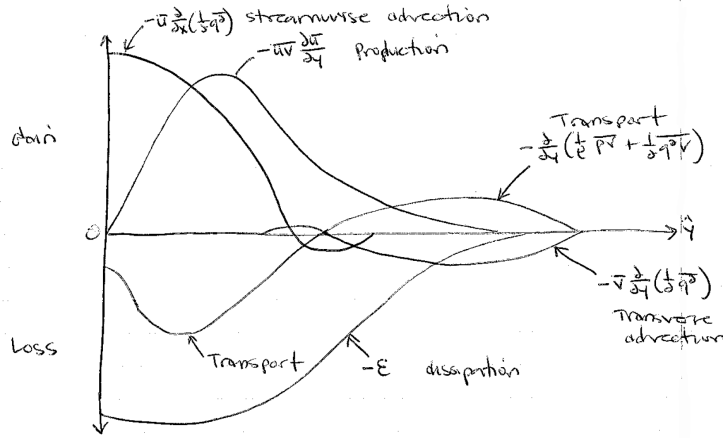 -ū ∂/∂x(½q̄²) streamwise advection
-u̅v̅ ∂ū/∂y Production
Gain
Transport
-∂/∂y(1/ρ p̅v̅ + ½q̅²v̅)
0
ŷ
-v̄ ∂/∂y(½q̄²)
Transverse
advection
Loss
Transport
-ε dissipation